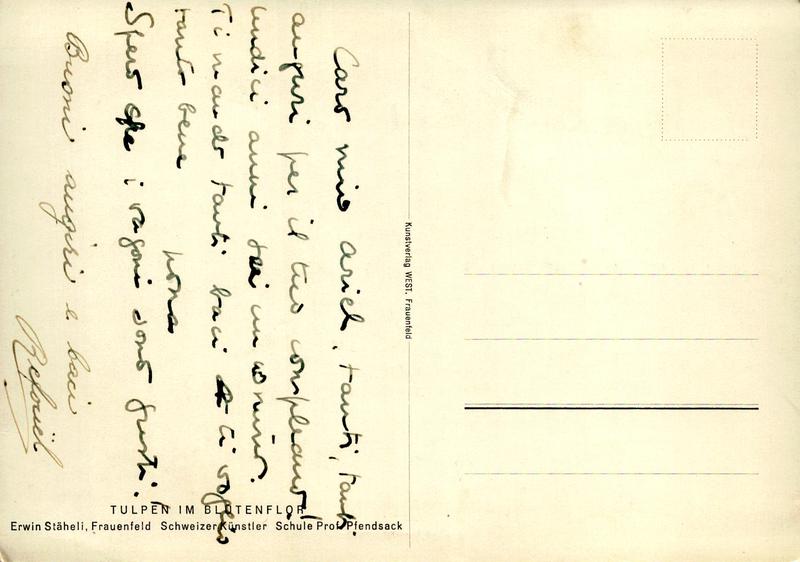 Caro mio Ariel, tanti, tanti
auguri per il tuo compleanno!
Undici anni sei un
Ti mando tanti baci e ti voglio
tanto bene
nona
Spero che i vagoni sono giusti!
Buoni auguri e baci
Refoüel
Kunstverlag WEST. Frauenfeld
TULPEN IM BLÜTENFLOR
Erwin Stäheli, Frauenfeld Schweizer Künstler Schule Prof. Pfendsack